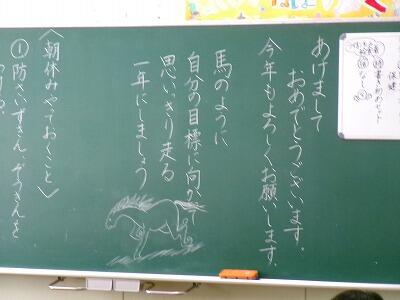 あけまして
おめでとうございます。
今年もよろしくお願いします。
馬のように
自分の目標に向か
思いっきり走る
一年にしましょう
〈朝休みやっておくこと〉
①防さいずきん、ぞうきんを
保健
書き初めセット
なし